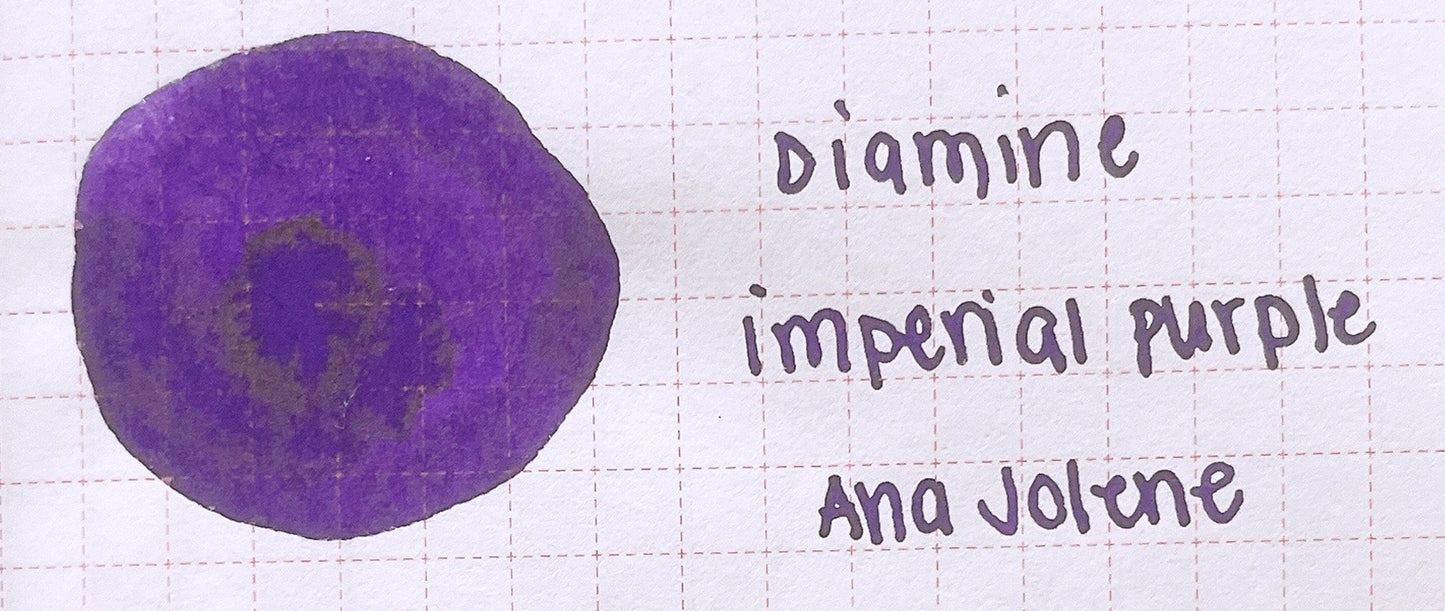 Diamine
imperial purple
Ana Jolene